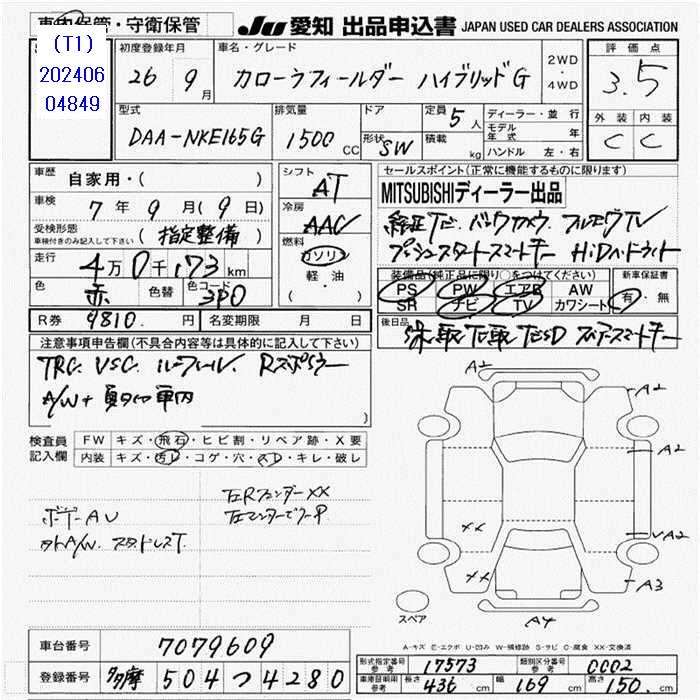 車内保管・守衛保管
JU 愛知 出品申込書 JAPAN USED CAR DEALERS ASSOCIATION
(T1)
202406
04849
初度登録年月 車名・グレード 2WD・4WD 評価点
26 9月 カローラフィールダー ハイブリッドG 3.5
型式 排気量 ドア 定員 5人 ディーラー・並行 外装 内装
DAA-NKE165G 1500CC 形状 SW 積載 kg モデル年式 年 C C
ハンドル 左・右
車歴 自家用・( ) シフト AT セールスポイント(正常に機能するものに限ります)
MITSUBISHIディーラー出品
車検 7年9月(9日) 冷房 AAC
純正TV. バックカメラ. フルセグTV
受検形態 車検付きのみ記入して下さい (指定整備) 燃料 ガソリン
プッシュスタートスマートキー HiDヘッドライト
走行 4万0千173km 軽・油 ( )
装備品(純正品に限り○をつけてください) 新車保証書
色 赤 色替 色コード 3P0
PS PW エアB AW 有・無
SR ナビ TV カワシート
R券 9810.円 名変期限 月 日
後日品
スペアースマートキー
注意事項申告欄(不具合内容等は具体的に記入して下さい)
TRC. VSC. Rスポイラー
A/W+ 車内
検査員記入欄 FW キズ・飛石・ヒビ割・リペア跡・X要
内装 キズ・汚レ・コゲ・穴・スレ・キレ・破レ
左Rフェンダー XX
ボデーAU
A/W. スタッドレスT.
A2
A2
A2
XX
VA2
XX
A3
A4
スペア
A-キズ E-エクボ U-凹み W-補修跡 S-サビ C-腐食 XX-交換済
車台番号 7079609
登録番号 多摩 504 つ 4280
形式指定番号 参考 17573 類別区分番号 参考 0002
車庫証明用 参考 長さ 436cm 幅 169cm 高さ 150cm